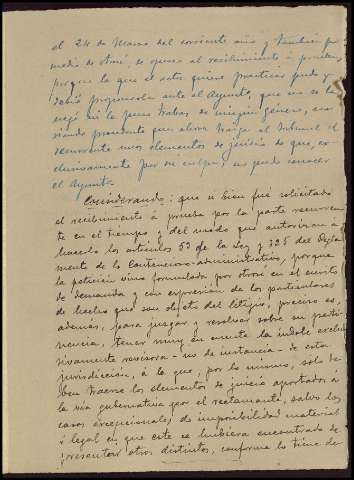 el 24 de Marzo del corriente año y también por
medio de otrosí, se opuso al recibimiento á prueba
porque la que el actor quiere practicar pudo y
debió proponerla ante el Ayunto, que no le
negó ni le puso trabas de ningún género, no
siendo procedente que ahora traiga al tribunal el
recurrente unos elementos de juicio de que, ex
clusivamente por su culpa, no pudo conocer
el Ayunto.
Considerando: que si bien fué solicitado
el recibimiento á prueba por la parte recurren
te en el tiempo y del modo que autorizan á
hacerlo los artículos 53 de la Ley y 325 del Regla
mento de lo Contencioso-administrativo, porque
la petición vino formulada por otrosí en el escrito
de demanda y con expresión de los particulares
de hecho que son objeto del litigio, preciso es,
además, para juzgar y resolver sobre su perti-
nencia, tener muy en cuenta la índole exclu
sivamente revisora - no de instancia - de esta
jurisdicción, á la que, por lo mismo, sólo de
ben traerse los elementos de juicio aportados á
la vía gubernativa por el reclamante, salvo los
casos excepcionales de imposibilidad material
ó legal en que este se hubiera encontrado de
presentar otros distintos, conforme lo tiene de